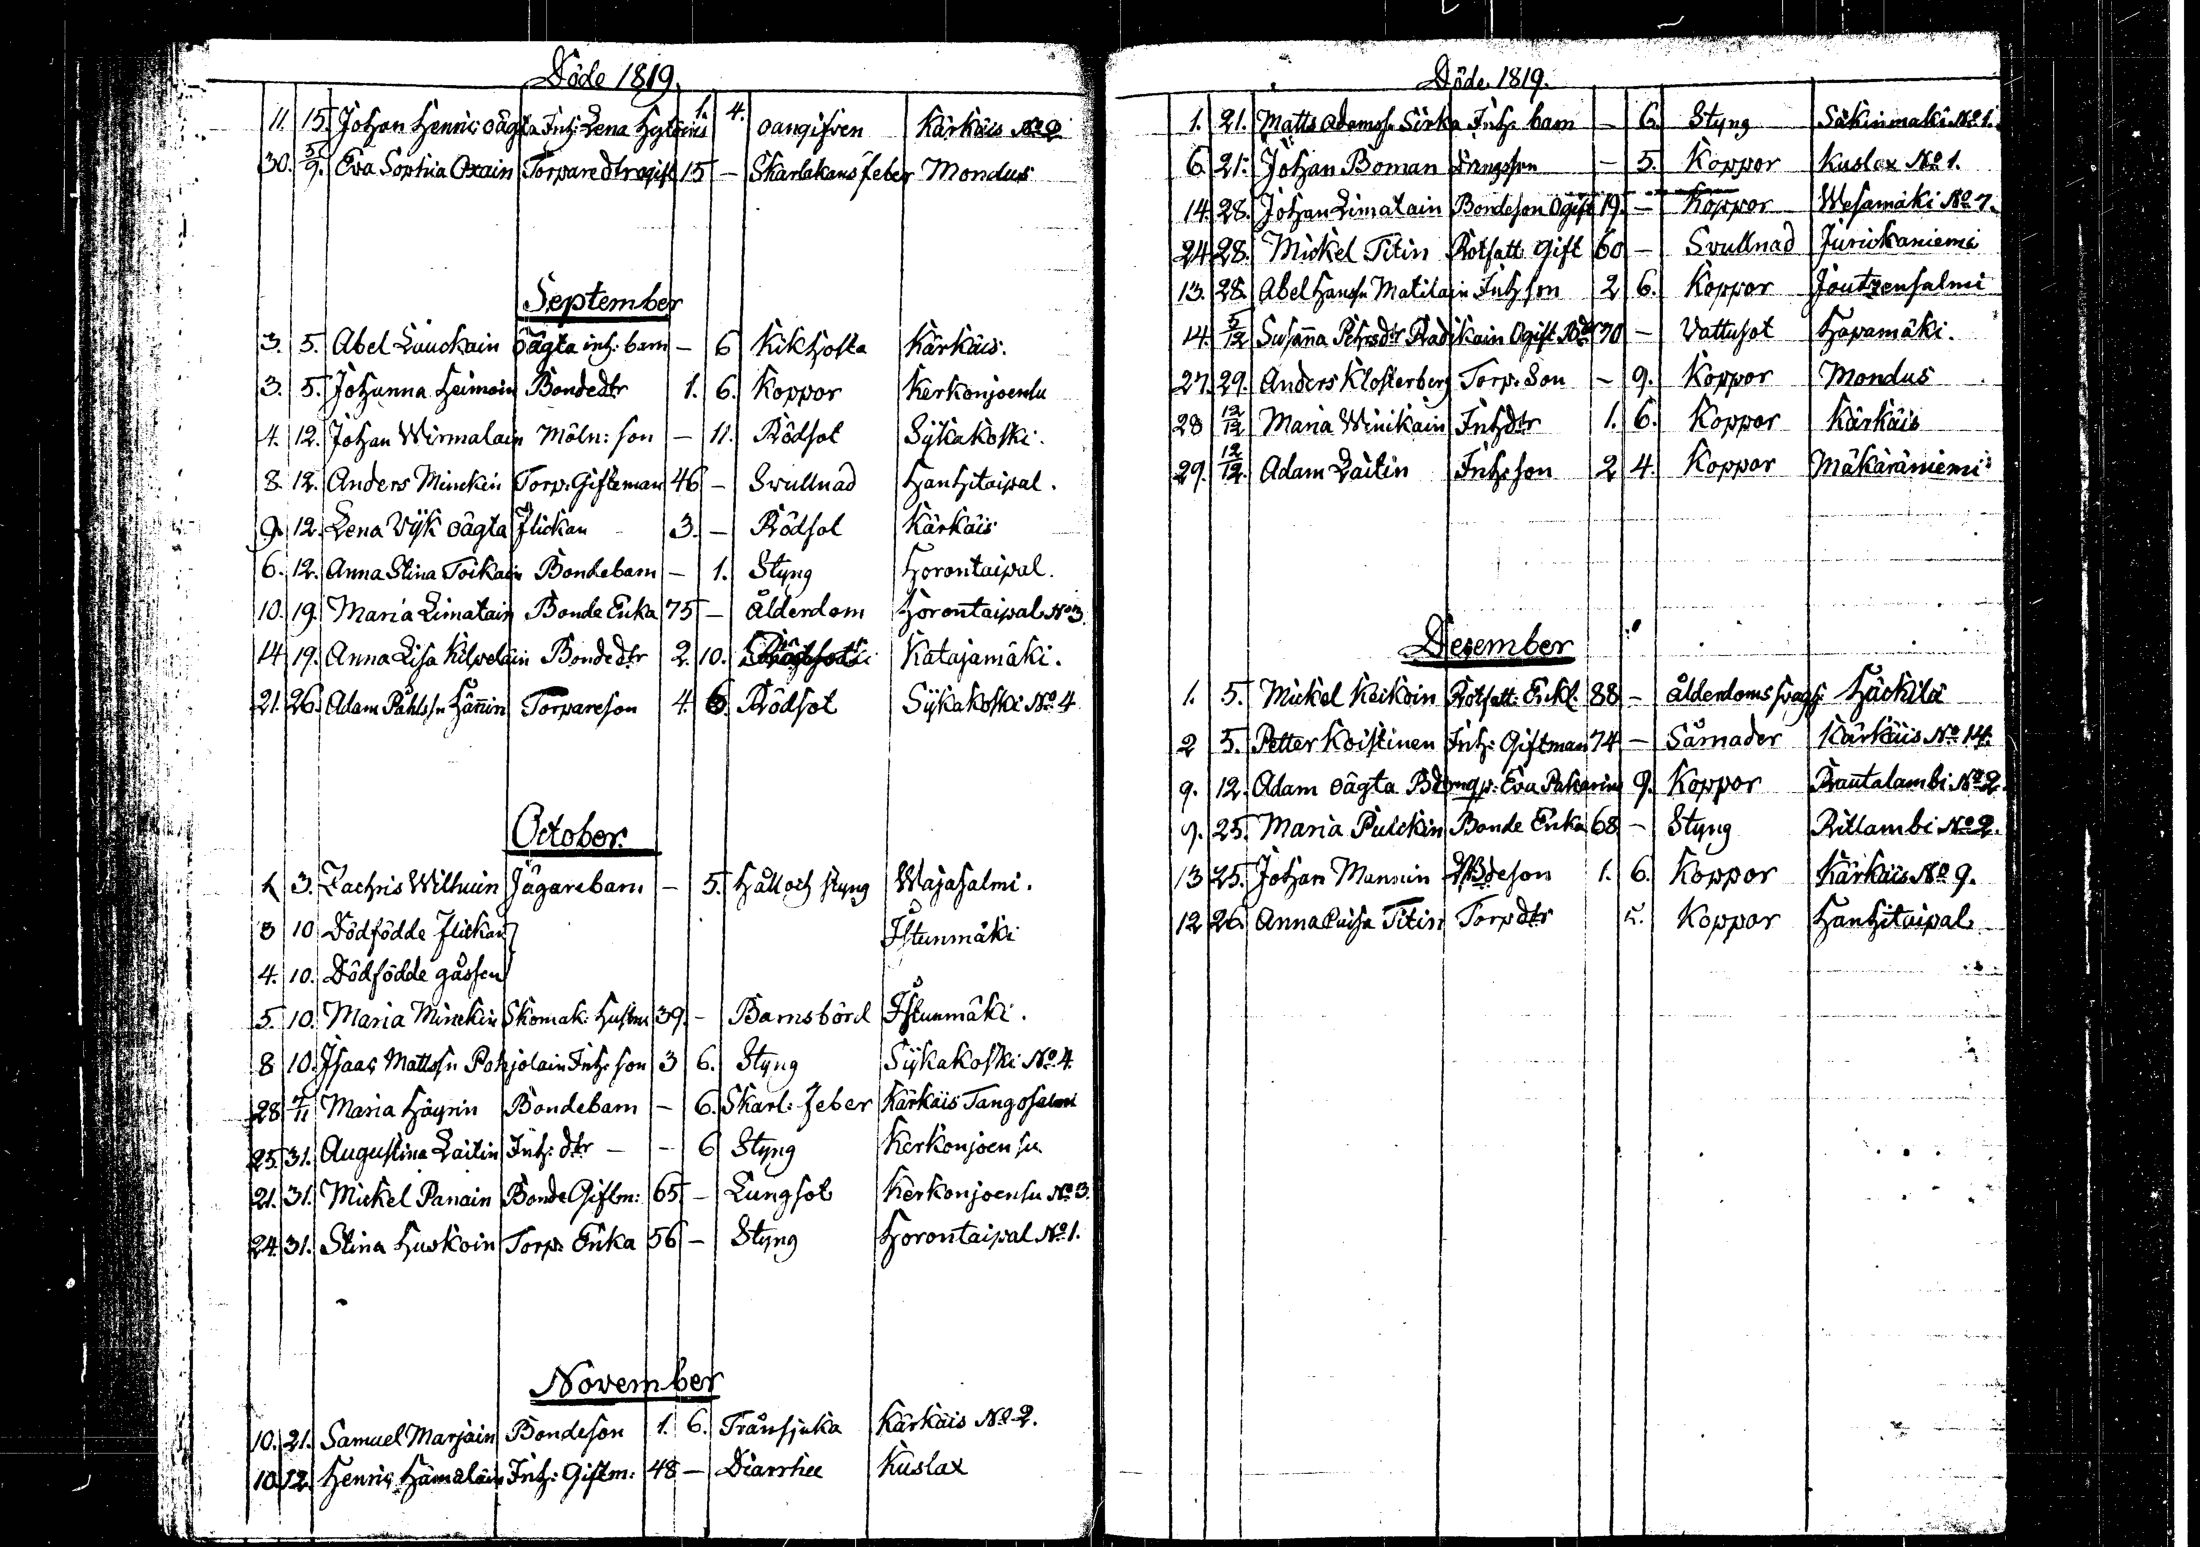 Döde 1819.
11. 15. Johan Henric oägta Inh: Lena Hytöinis 1. 4. oangifven Kärkäis No 9
30. 5/9. Eva Sophia Oxain Torparedtr ogift 15 - Skarlakans feber Mondus
September
3. 5. Abel Lauckain oägta inh: barn - 6 Kikhosta Kärkäis.
3. 5. Johanna Heimoin Bondedtr 1. 6. Koppor Kerkonjoensu
4. 12. Johan Wirmalain Möln: son - 11. Rödsot Sÿkäkoski.
8. 12. Anders Minckin Torp: Gifteman 46 - Svullnad Hanhitaipal.
9. 12. Lena Vÿk oägta Flickan 3. - Rödsot Kärkäis
6. 12. Anna Stina Toikain Bondebarn - 1. Styng Horontaipal.
10. 19. Maria Limatain Bonde Enka 75 - ålderdom Horontaipal No 3.
14 19. Anna Lisa Kilpeläin Bondedtr 2. 10. Katajamäki.
21. 26. Adam Påhlsn Hännin Torpareson 4. 6. Rödsot Sÿkäkoski No 4
October.
1. 3. Zachris Wilhuin Jägarebarn - 5. Håll och styng Wajasalmi.
3 10 Dödfödde Flickan Istunmäki
4. 10. Dödfödde gåssen
5. 10. Maria Minckin Skomak: Hustru 39. - Barnsbörd Istunmäki.
8 10. Isaac Mattssn Pohjolain Inh: son 3 6. Styng Sÿkäkoski No 4.
28 7/11 Maria Häyrin Bondebarn - 6. Skarl: feber Kärkäis Tangosalmi
25. 31. Augustina Laitin Inh: dtr - - 6 Styng Kerkonjoensu
21. 31. Mickel Panain Bonde Giftm: 65 - Lungsot Kerkonjoensu No 3.
24. 31. Stina Huskoin Torp: Enka 56 - Styng Horontaipal No 1.
November
10. 21. Samuel Marjain Bondeson 1. 6. Trånsjuka Kärkäis No 2.
10. 12. Henric Hämäläin Inh: Giftm: 48 - Diarrhee Kuslax
Döde 1819.
1. 21. Matts Adamss: Sirka Inh: barn - 6. Styng Säkinmäki No 1.
6. 21. Johan Boman Drengsson - 5. Koppor Kuslax No 1.
14. 28. Johan Limatain Bondeson Ogift 19. - Koppor Wesamäki No 7.
24. 28. Mickel Titin Rotfatt: Gift 60 - Svullnad Jurickaniemi
13. 28. Abel Hanssn Matilain Inh: son 2 6. Koppor Joutzensalmi
14. 5/12 Susanna Pehrsdtr Radikain Ogift 70 - Vattusot Hapamäki.
27. 29. Anders Klosterberg Torp: Son - 9. Koppor Mondus
28 12/12 Maria Winikain Inh:dtr 1. 6. Koppor Kärkäis
29. 12/12. Adam Laitin Inh: son 2 4. Koppor Mäkäräniemi
December
1. 5. Mickel Keikoin Rotfatt: Enkl: 88 - ålderdoms svagh: Häckilä
2 5. Petter Koistinen Inh: Giftman 74 - Sårnader Kärkäis No 14.
9. 12. Adam oägta Eva Pakarins 9. Koppor Rautalambi No 2.
9. 25. Maria Pulckin Bonde Enka 68 - Styng Rillambi No 2.
13 25. Johan Mannin Bdeson 1. 6. Koppor Kärkäis No 9.
12 26. Anna Caisa Titin Torpdtr 5. Koppor Hanhitaipal.